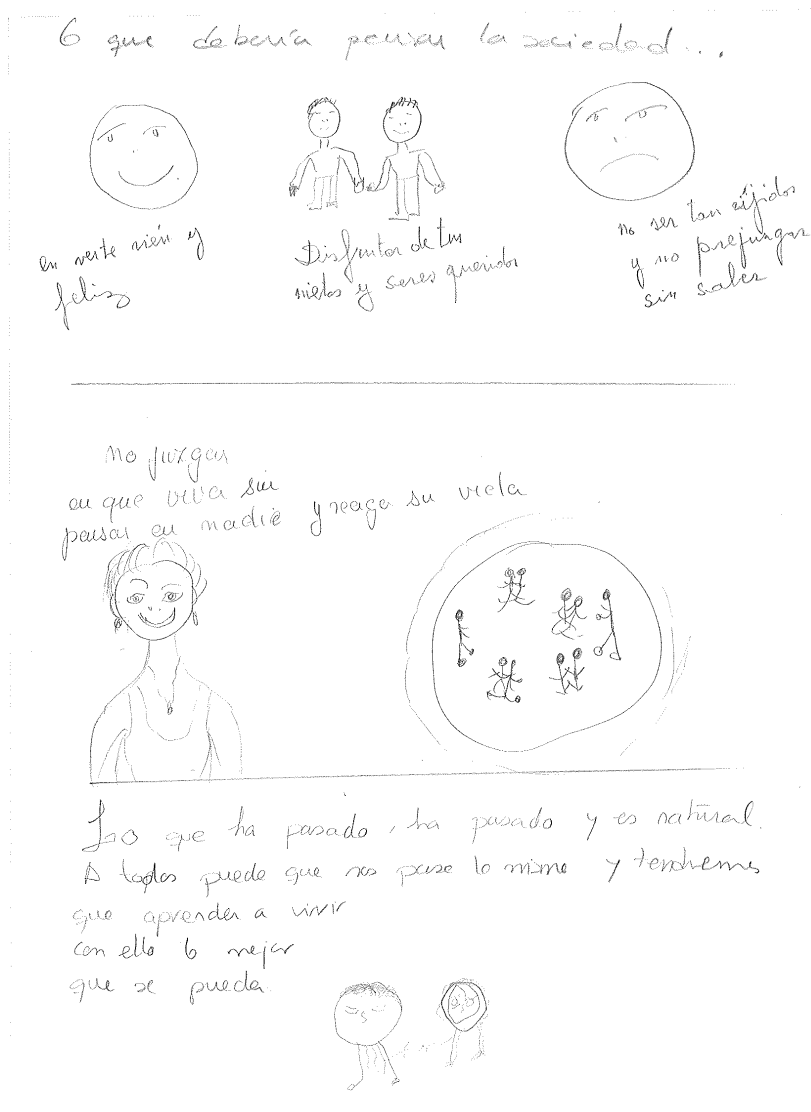 lo que debería pensar la sociedad...
en verte vién y
feliz
Disfrutar de tus
nietos y seres queridos
no ser tan rijidos
y no prejuzgar
sin saber
no juzgar
en que viva sin
pensar en nadie y reaga su vida
Lo que ha pasado, ha pasado y es natural.
A todos puede que nos pase lo mismo y tendremos
que aprender a vivir
con ello lo mejor
que se pueda